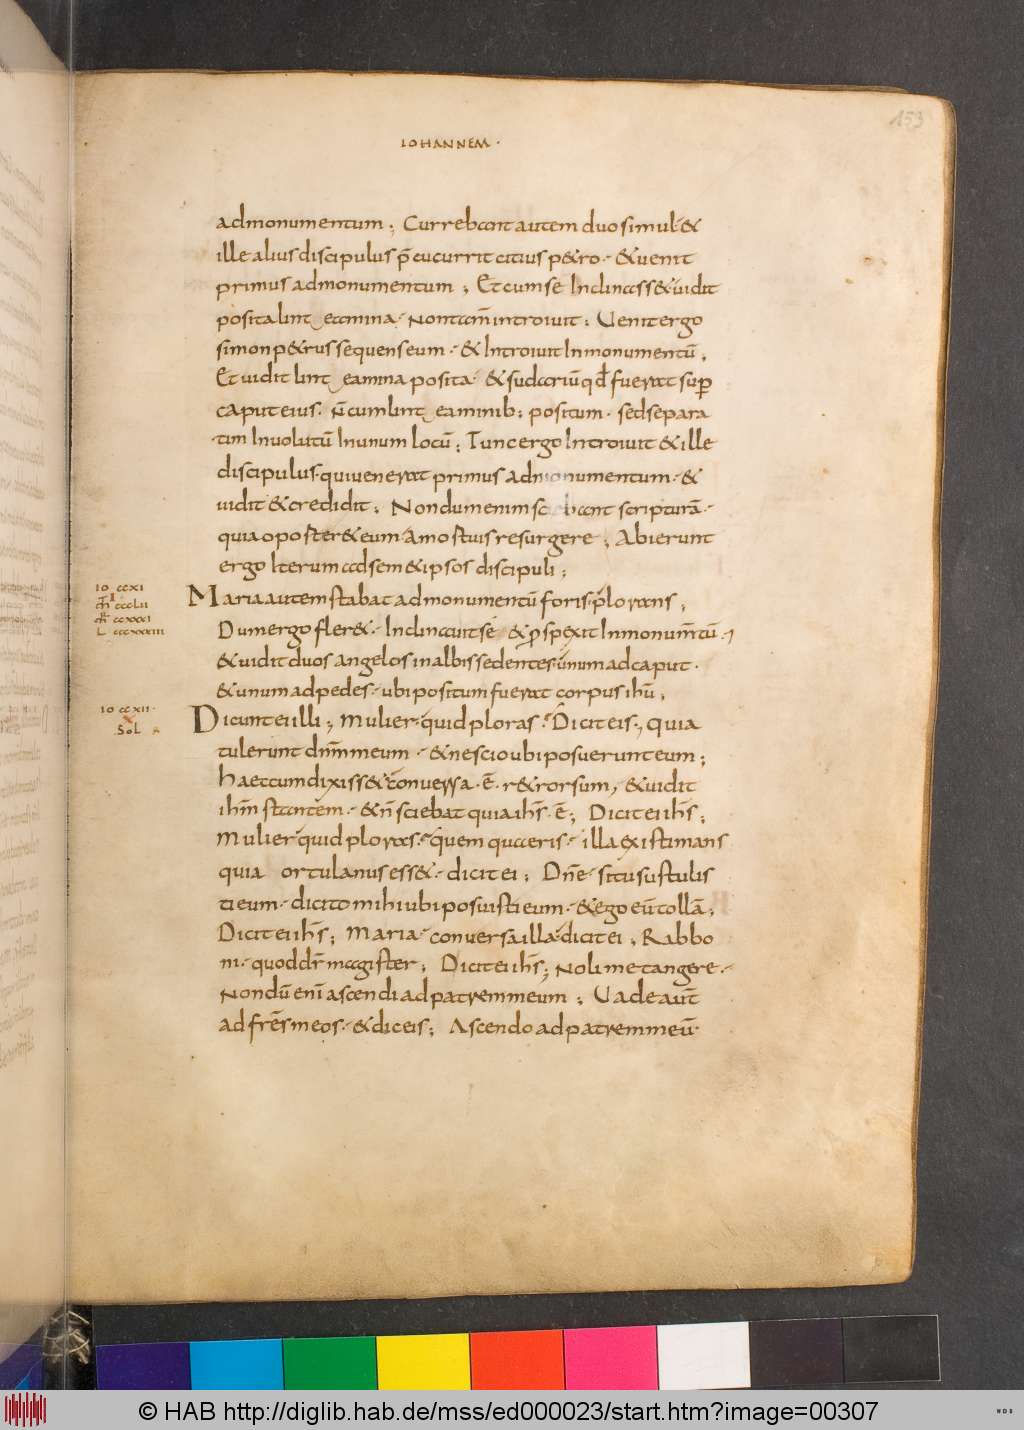 153
IOHANNEM ·
ad monumentum ; Currebant autem duo simul &
ille alius discipulus p̄cucurrit citius p&ro · & uenit
primus ad monumentum ; Et cum se Inclinass& uidit
posita lint eamina · Non tam̄ introiuit ; Uenit ergo
simon p&rus sequens eum · & Introiuit In monumentū ,
Et uidit lint eamina posita · & sudariū qđ fuerat sup̄
caput eius · n̄ cum lint eaminib ; positum · sed separa
tim Inuolutū In unum locū ; Tunc ergo Introiuit & ille
discipulus · qui uenerat primus ad monumentum · &
uidit & credidit ; Nondum enim sciebant scripturā ·
quia oporter& eum A mortuis resurgere ; Abierunt
ergo Iterum ad sem&ipsos discipuli ;
IO ccxi
m̄ cccLII
m̄r ccxxxi
L cccxxxiii
Maria autem stabat ad monumentū foris plorans ;
Dum ergo fler& · Inclinauit se & p̄spexit In monum̄tū ·
& uidit duos angelos in albis sedentes · unum ad caput ·
& unum ad pedes · ubi positum fuerat corpus ihū ;
IO ccxii ·
x
Sol
Dicunt ei illi ; Mulier · quid ploras · Dicit eis ; quia
tulerunt dnm̄ meum · & nescio ubi posuerunt eum ;
haec cum dixiss& conuersa · ē · r&rorsum , & uidit
ihm̄ stantem · & n̄ sciebat quia ihs̄ · ē ; Dicit ei ihs̄ ;
Mulier quid ploras · quem quaeris · illa existimans
quia ortulanus ess& · dicit ei ; Dn̄e · si tu sustulis
ti eum · dicito mihi ubi posuisti eum · & ego eū tollā ;
Dicit ei ihs̄ ; Maria · conuersa illa · dicit ei ; Rabbo
ni · quod dr̄ magister ; Dicit ei ihs̄ ; Noli me tangere ·
Nondū enī ascendi ad patrem meum ; Uade aut̄
ad frēs meos · & dic eis ; Ascendo ad patrem meū ·
© HAB http://diglib.hab.de/mss/ed000023/start.htm?image=00307
WDB